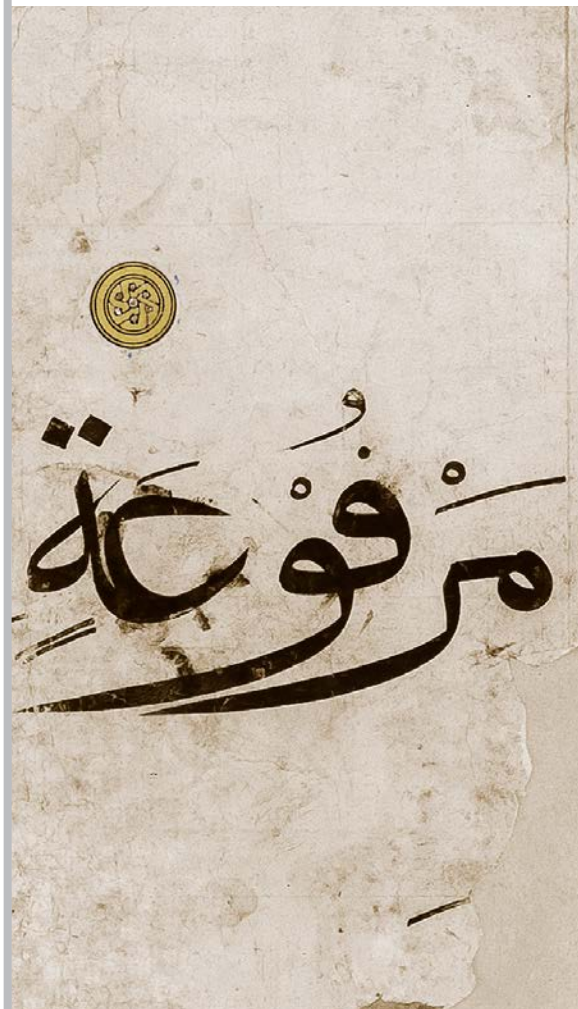 مَرْفُوْعَةٍ